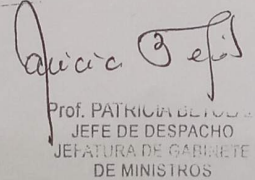 Prof. PATRICIA
JEFE DE DESPACHO
JEFATURA DE GABINETE
DE MINISTROS